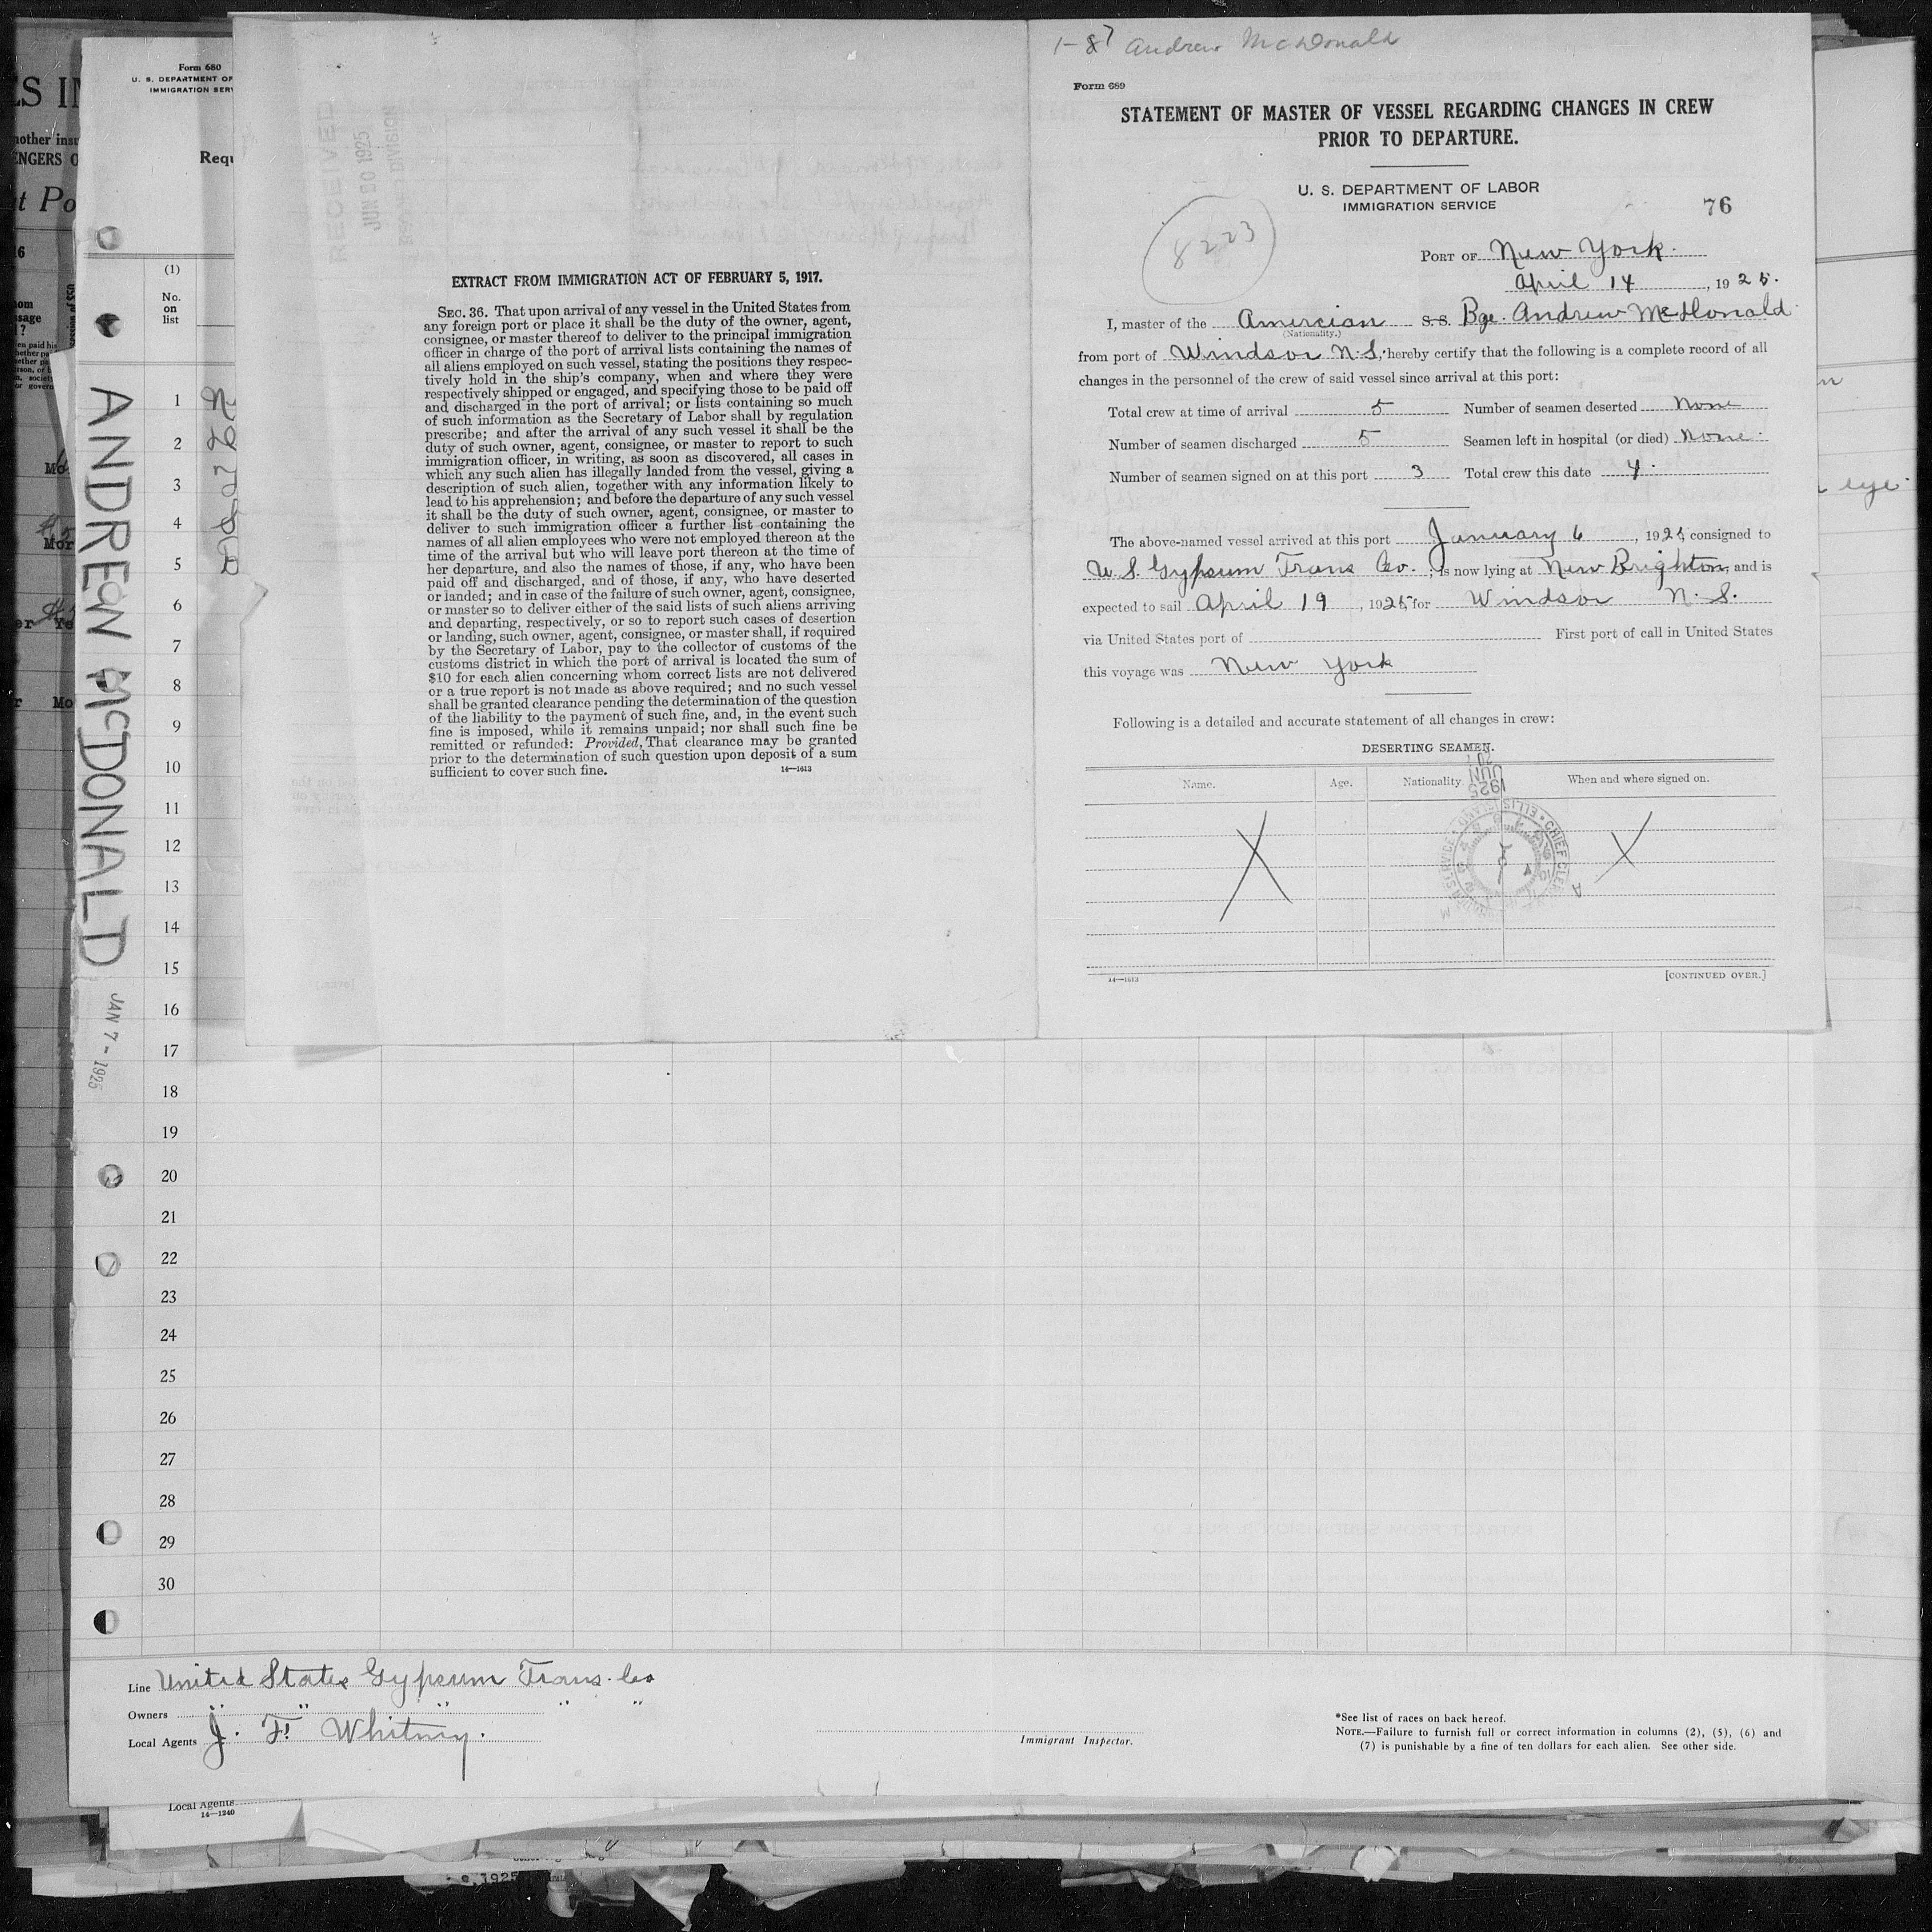 Form 680
U. S. DEPARTMENT OF
IMMIGRATION SERV
Requ
(1)
No.
on
list
1
2
3
4
5
6
7
8
9
10
11
12
13
14
15
16
17
18
19
20
21
22
23
24
25
26
27
28
29
30
ANDREW McDONALD
JAN 7 - 1925
RECEIVED
JUN 20 1925
DIVISION
EXTRACT FROM IMMIGRATION ACT OF FEBRUARY 5, 1917.
SEC. 36. That upon arrival of any vessel in the United States from
any foreign port or place it shall be the duty of the owner, agent,
consignee, or master thereof to deliver to the principal immigration
officer in charge of the port of arrival lists containing the names of
all aliens employed on such vessel, stating the positions they respec-
tively hold in the ship's company, when and where they were
respectively shipped or engaged, and specifying those to be paid off
and discharged in the port of arrival; or lists containing so much
of such information as the Secretary of Labor shall by regulation
prescribe; and after the arrival of any such vessel it shall be the
duty of such owner, agent, consignee, or master to report to such
immigration officer, in writing, as soon as discovered, all cases in
which any such alien has illegally landed from the vessel, giving a
description of such alien, together with any information likely to
lead to his apprehension; and before the departure of any such vessel
it shall be the duty of such owner, agent, consignee, or master to
deliver to such immigration officer a further list containing the
names of all alien employees who were not employed thereon at the
time of the arrival but who will leave port thereon at the time of
her departure, and also the names of those, if any, who have been
paid off and discharged, and of those, if any, who have deserted
or landed; and in case of the failure of such owner, agent, consignee,
or master so to deliver either of the said lists of such aliens arriving
and departing, respectively, or so to report such cases of desertion
or landing, such owner, agent, consignee, or master shall, if required
by the Secretary of Labor, pay to the collector of customs of the
customs district in which the port of arrival is located the sum of
$10 for each alien concerning whom correct lists are not delivered
or a true report is not made as above required; and no such vessel
shall be granted clearance pending the determination of the question
of the liability to the payment of such fine, and, in the event such
fine is imposed, while it remains unpaid; nor shall such fine be
remitted or refunded: Provided, That clearance may be granted
prior to the determination of such question upon deposit of a sum
sufficient to cover such fine. 14—1613
1-87 Andrew McDonald
Form 689
STATEMENT OF MASTER OF VESSEL REGARDING CHANGES IN CREW
PRIOR TO DEPARTURE.
U. S. DEPARTMENT OF LABOR
IMMIGRATION SERVICE
76
8223
PORT OF New York.
April 14, 1925.
I, master of the Amercian S.S. Bge. Andrew McDonald
(Nationality.)
from port of Windsor N.S., hereby certify that the following is a complete record of all
changes in the personnel of the crew of said vessel since arrival at this port:
Total crew at time of arrival 5 Number of seamen deserted None
Number of seamen discharged 5 Seamen left in hospital (or died) None.
Number of seamen signed on at this port 3 Total crew this date 4.
The above-named vessel arrived at this port January 6, 1925, consigned to
U. S. Gypsum Trans Co.; is now lying at New Brighton, and is
expected to sail April 19, 1925 for Windsor N. S.
via United States port of First port of call in United States
this voyage was New York
Following is a detailed and accurate statement of all changes in crew:
DESERTING SEAMEN.
Name. Age. Nationality. When and where signed on.
JUN 1925
CHIEF CLERK
[CONTINUED OVER.]
14—1613
eye.
Line United States Gypsum Trans. Co
Owners " " " "
Local Agents J. F. Whitney.
Immigrant Inspector.
*See list of races on back hereof.
NOTE.—Failure to furnish full or correct information in columns (2), (5), (6) and
(7) is punishable by a fine of ten dollars for each alien. See other side.
Local Agents
14—1240